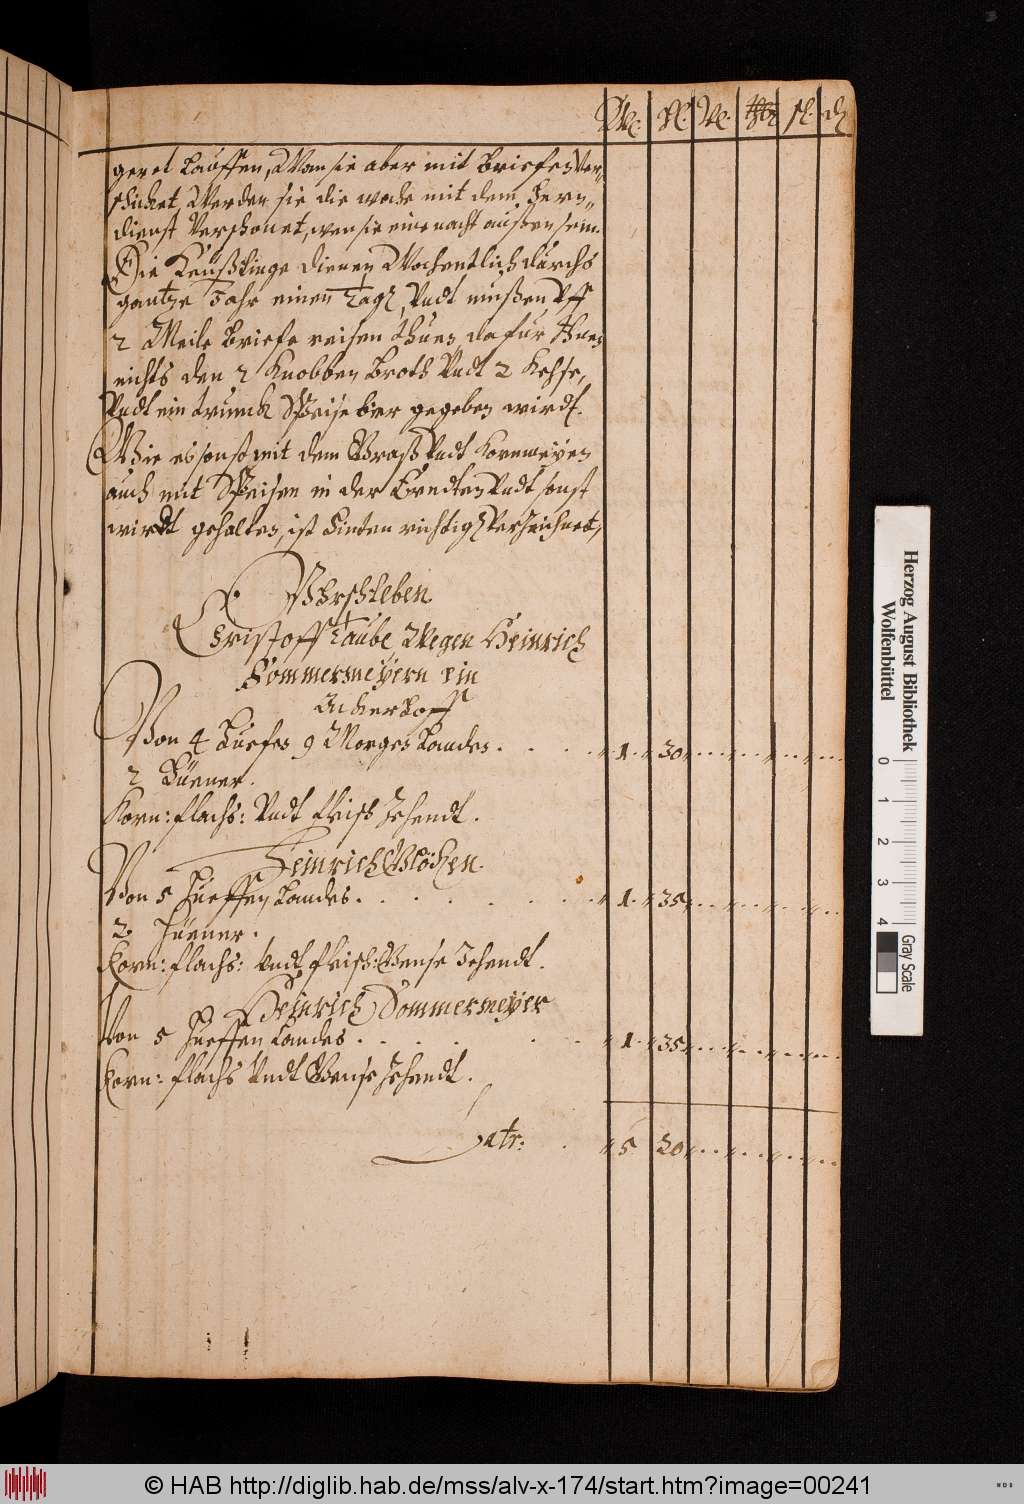 geret Lauffen, Wan sie aber mit briefen Ver-
schicket, Werden sie die woche mit dem Herrn-
dienst Verschonet, wen sie eine nacht außen sein.
Die Keüßlinge dienen Wochentlich durchs
gantze Jahr einen Tagk, Undt müßen Uff
2 Meile briefe reisen thuen, dafür Ihnen
nichts den 2 Knobben broth Undt 2 Kehse,
Undt ein trunck Speise bier gegeben wirdt.
Wie es sonst mit dem Graß Undt Kornmeyen
auch mit Speisen in der Erndten Undt sonst
wirdt gehalten, ist hinten richtigk Verzeichnet,
Uhrschleben
Cristoff Taube Wegen Heinrich
Sommermeyern ein
Ackerhoff
Von 4 Huefen 9 Morgen Landes . . . . 1 30
2 Hüener.
Korn: flachs: Undt fleisch Zehendt.
Heinrich Blöcken
Von 5 Hueffen Landes . . . . . . 1 35
2 Hüener.
Korn: flachs: Undt fleisch: Gense Zehendt.
Heinrich Sommermeyer
Von 5 Hueffen Landes . . . . . 1 35
Korn: flachs Undt Gense Zehendt.
Latr: . 5 20
Herzog August Bibliothek
Wolfenbüttel
0 1 2 3 4
Gray Scale
© HAB http://diglib.hab.de/mss/alv-x-174/start.htm?image=00241